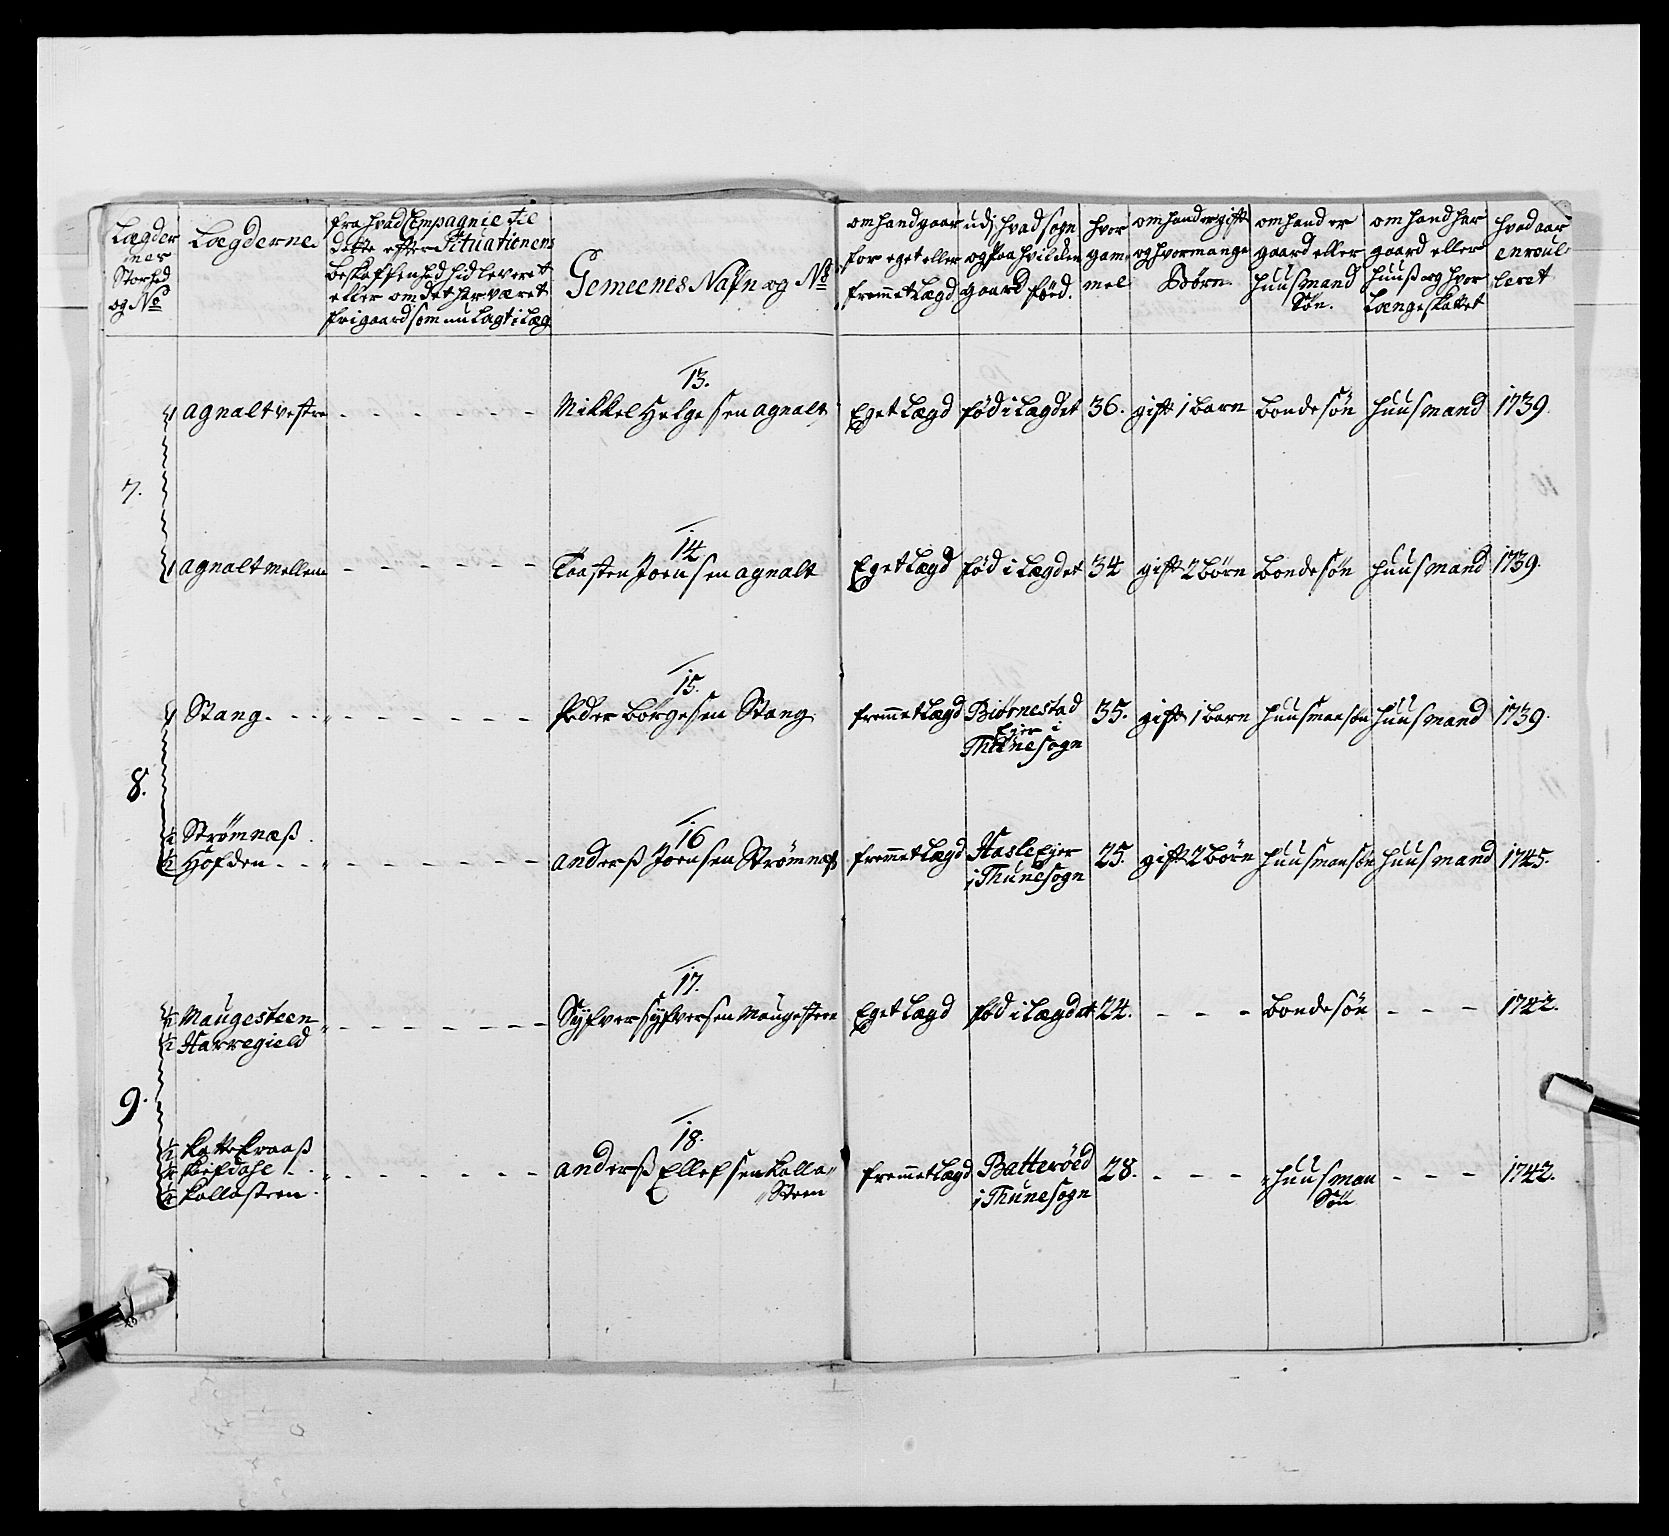 Lægder
nes
Storhed
og No
Lægderne
fra hvad Compagnie til
dette efter Situationens
beskaffenhed hid leveret
eller om det har været
frigaard som nu lagt i Læg
Gemeenes Nafn og No
om hand gaar
for eget eller
fremmet Lægd
udj hvad sogn
og paa hvilden
gaard fød.
hvor
gam
mel
om hand er gift
og hvor mange
Børn.
om hand er
gaard eller
huusmand
Søn.
om hand har
gaard eller
huuß og hvor
Længe skattet
hvad aar
enroul
leret
7.
Agnalt vestre
13.
Mikkel Helgesen Agnalt
Eget Lægd
fød i Lægdet
36.
gift 1 barn
bondesøn
huusmand
1739.
Agnalt mellem
14.
Taasten Joensen Agnalt
Eget Lægd
fød i Lægdet
34
gift 2 børn
bondesøn
huusmand
1739.
8.
Stang
15.
Peder Børgesen Stang
fremmet Lægd
Biørnestad
Ejer i
Thunesogn
35.
gift 1 barn
huusmansøn
huusmand
1739.
½ Strømnæß
½ Hofden
16
Anderß Joensen Strømnæß
fremmet Lægd
Hasle Ejer
i Thunesogn
25.
gift 2 børn
huusmansøn
huusmand
1745.
9.
½ Maugesteen
½ Harregield
17.
Syfver Syfversen Maugesteen
Eget Lægd
fød i Lægdet
24.
bondesøn
1742.
Kattekraaß
Kollasteen
18.
Anderß Ellefsen Kolla
Steen
fremmet Lægd
Batterød
i Thunesogn
28.
huusman
Søn
1742.